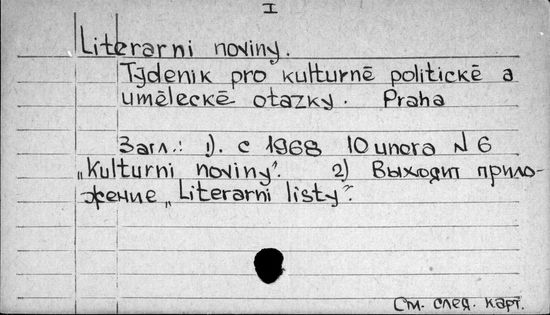 I
Literarni noviny.
Týdenik pro kulturně politické a
umělecké otazky. Praha
Загл.: 1). с 1968 10 unora N 6
„Kulturni noviny". 2) Выходит прило-
жение „Literarni listy".
См. след. карт.